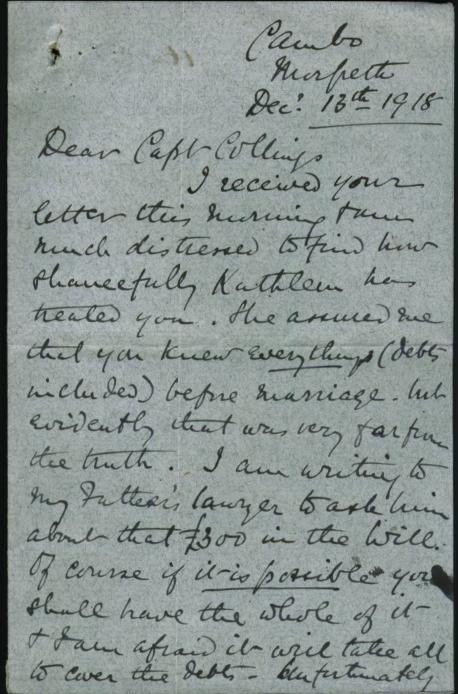 Cambo
Morpeth
Dec: 13th 1918
Dear Capt Collings
I received your
letter this morning & am
much distressed to find how
shamefully Kathleen has
treated you. She assured me
that you knew everything (debts
included) before marriage - but
evidently that was very far from
the truth. I am writing to
my Father's lawyer to ask him
about that £300 in the Will.
Of course if it is possible you
shall have the whole of it
& I am afraid it will take all
to cover the debts - Unfortunately